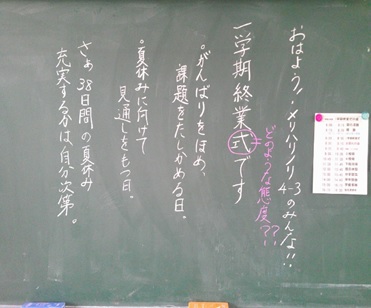 おはよう!メリハリノリ4-3のみんな!!
一学期終業式です
どのような態度??
。がんばりをほめ、
課題をたしかめる日。
。夏休みに向けて
見通しをもつ日。
さぁ 38日間の夏休み
充実するかは、自分次第。